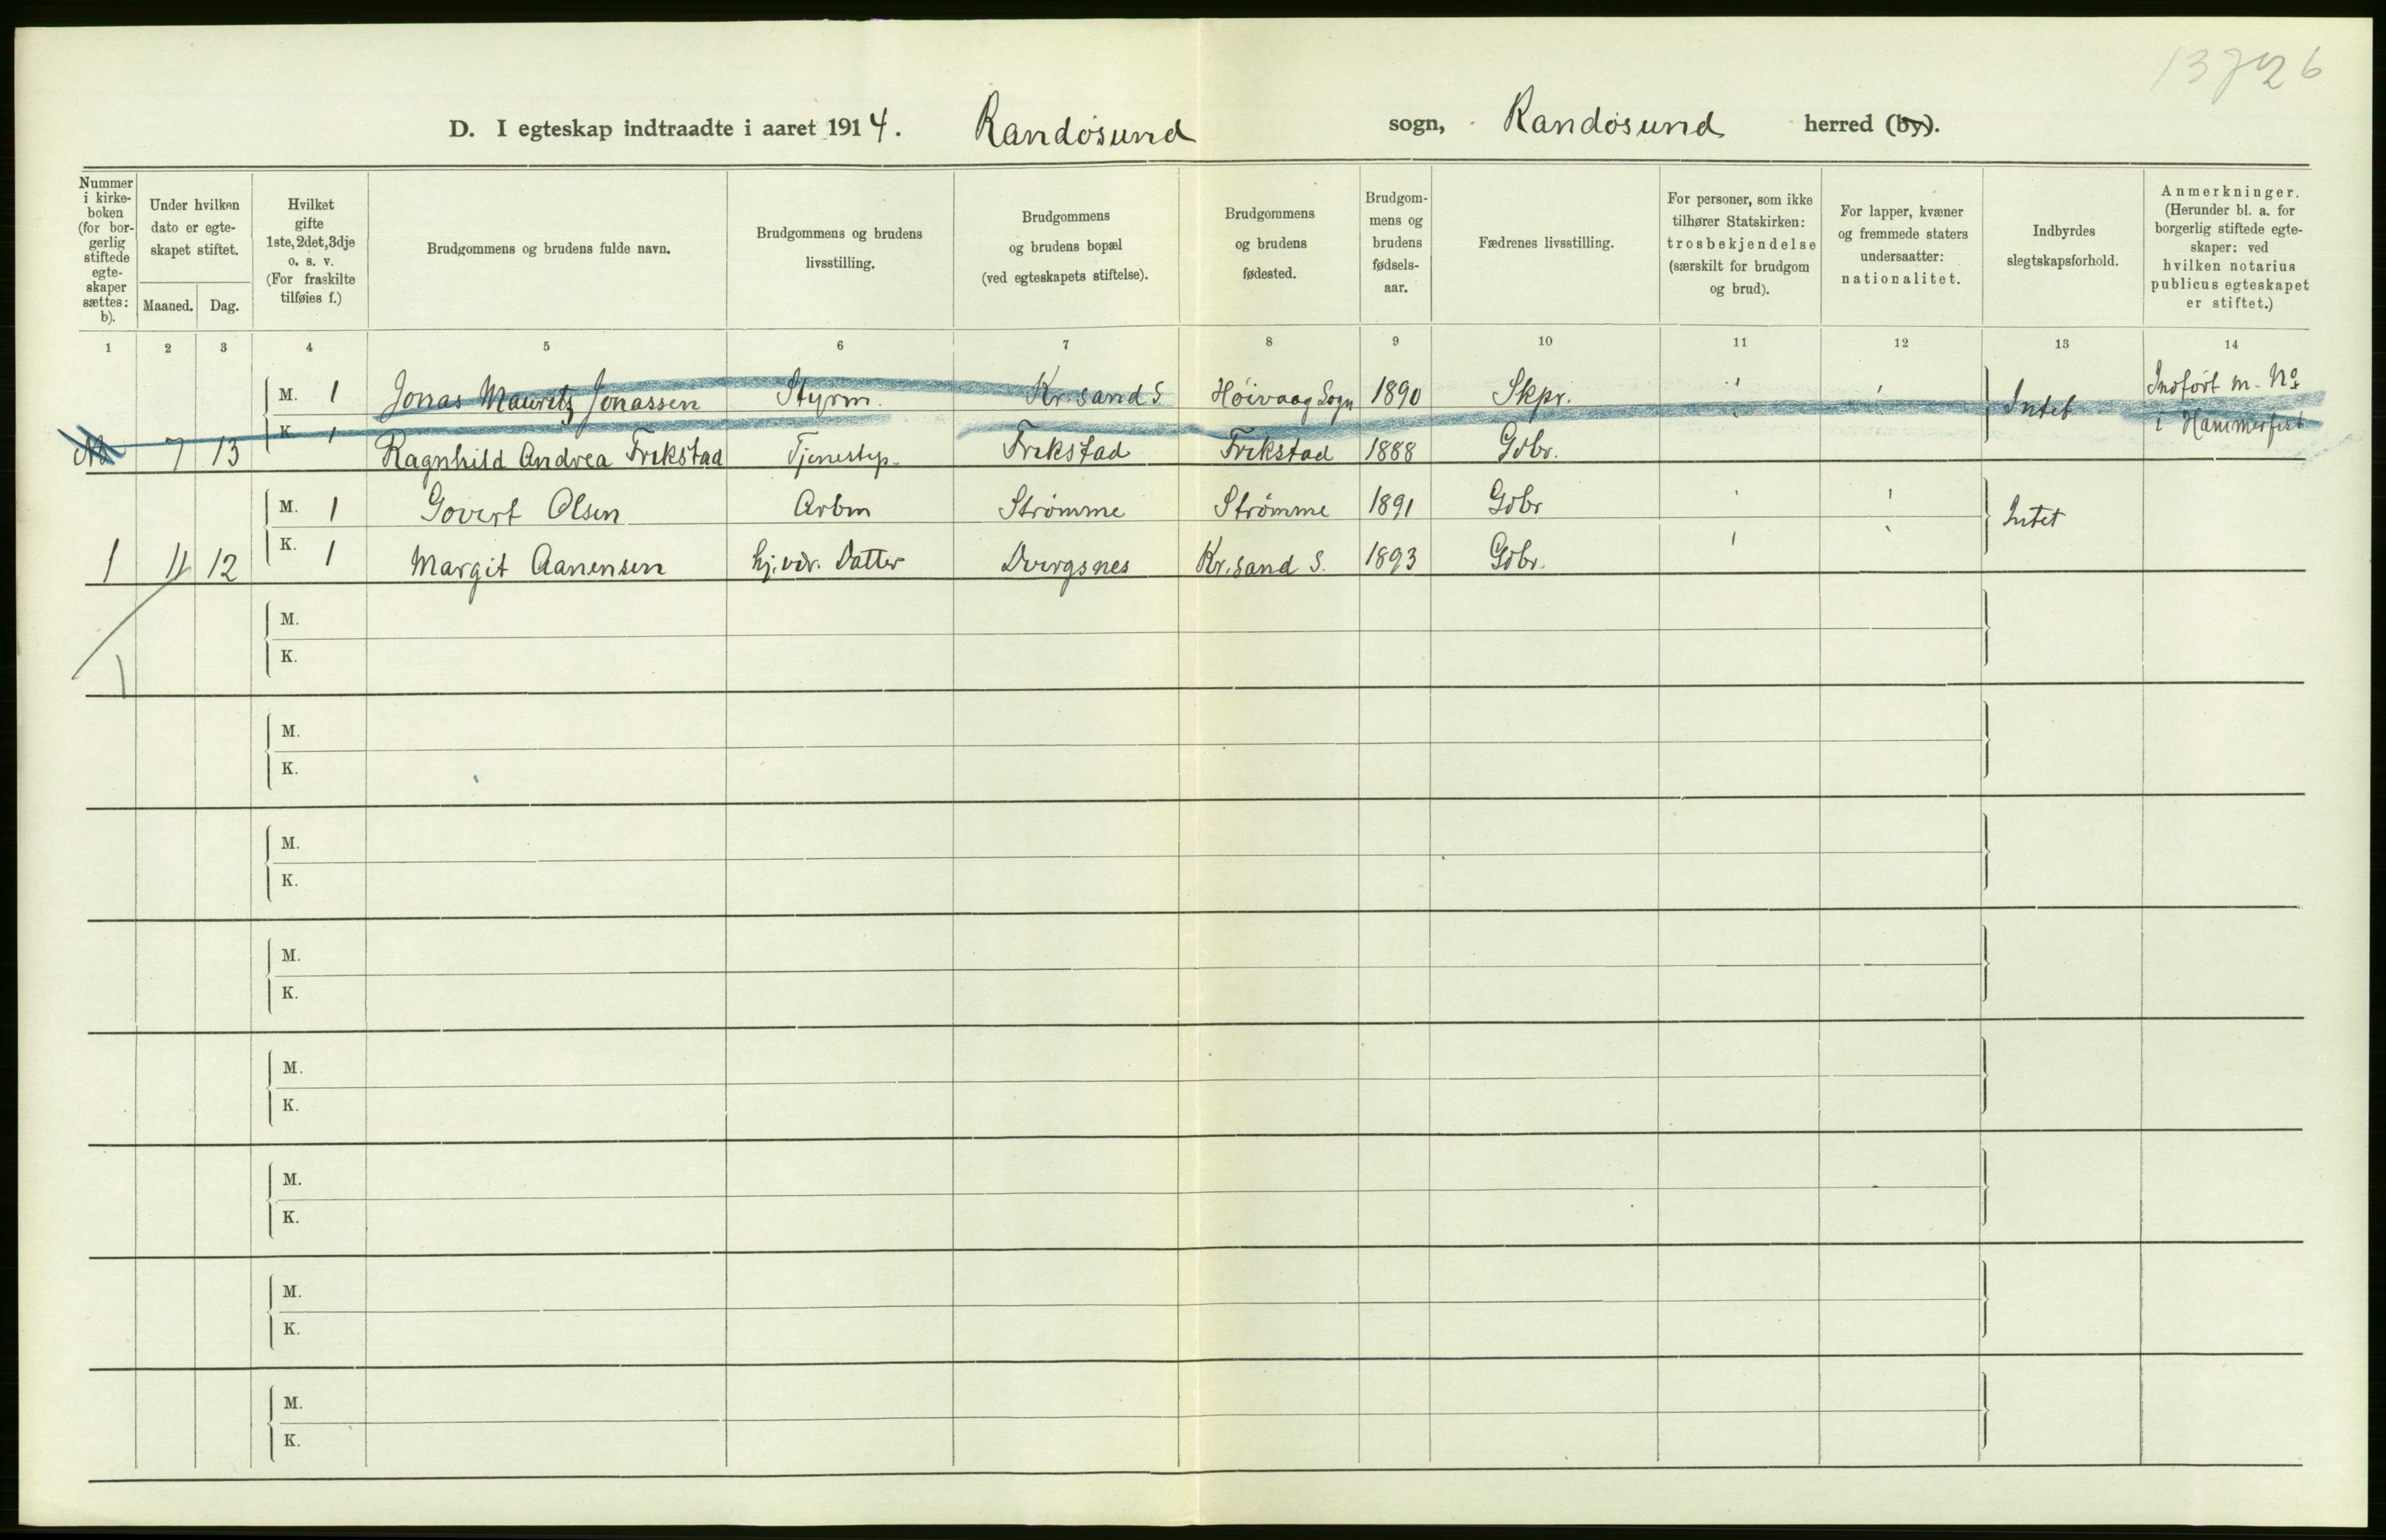 13726
D. I egteskap indtraadte i aaret 1914. Randøsund sogn, Randøsund herred (by).
Nummer
i kirke-
boken
(for bor-
gerlig
stiftede
egte-
skaper
sættes:
b).
Under hvilken
dato er egte-
skapet stiftet.
Maaned. Dag.
Hvilket
gifte
1ste, 2det, 3dje
o. s. v.
(For fraskilte
tilføies f.)
Brudgommens og brudens fulde navn.
Brudgommens og brudens
livsstilling.
Brudgommens
og brudens bopæl
(ved egteskapets stiftelse).
Brudgommens
og brudens
fødested.
Brudgom-
mens og
brudens
fødsels-
aar.
Fædrenes livsstilling.
For personer, som ikke
tilhører Statskirken:
trosbekjendelse
(særskilt for brudgom
og brud).
For lapper, kvæner
og fremmede staters
undersaatter:
nationalitet.
Indbyrdes
slegtskapsforhold.
Anmerkninger.
(Herunder bl. a. for
borgerlig stiftede egte-
skaper: ved
hvilken notarius
publicus egteskapet
er stiftet.)
1 2 3 4 5 6 7 8 9 10 11 12 13 14
M. 1 Jonas Mauritz Jonassen Styrm. Kr.sand S Høivaag Sogn 1890 Skpr. Intet Indført m. No
i Hammerfest
7 13 K. 1 Ragnhild Andrea Frikstad Tjenestep. Frikstad Frikstad 1888 Gdbr.
M. 1 Govert Olsen Arbm Strømme Strømme 1891 Gdbr Intet
1 11 12 K. 1 Margit Aanensen hj.vær. Datter Dvergsnes Kr.sand S. 1893 Gdbr.
1
M.
K.
M.
K.
M.
K.
M.
K.
M.
K.
M.
K.
M.
K.
M.
K.